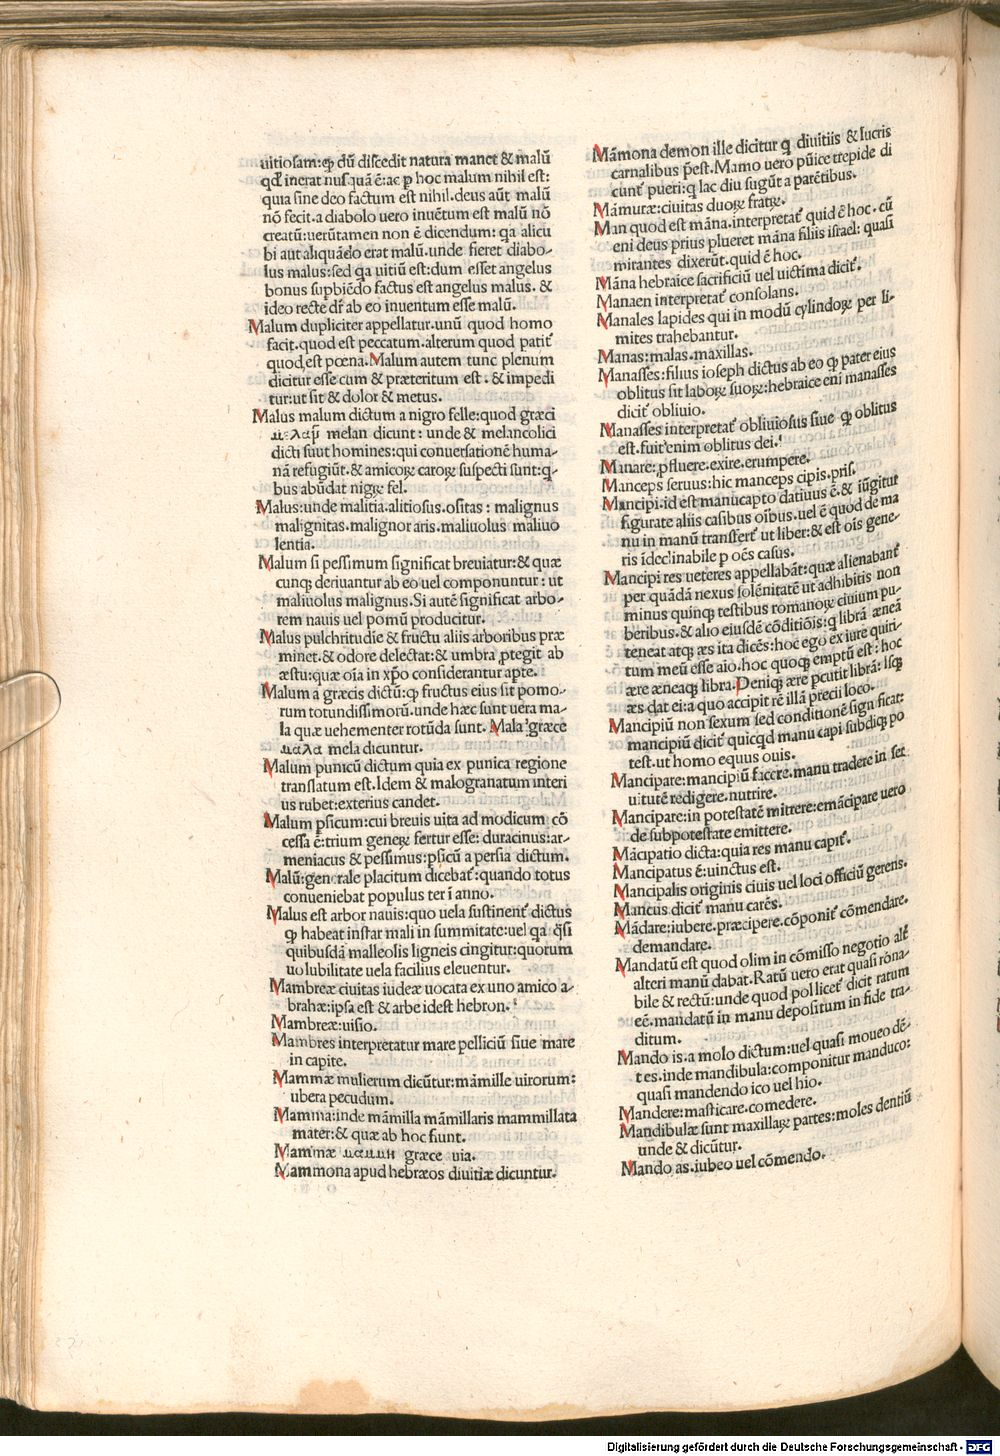 uitiosam:qꝫ dū discedit natura manet & malū
qđ inerat nusquā ē:ac ꝑ hoc malum nihil est:
quia sine deo factum est nihil.deus aūt malū
nō fecit.a diabolo uero inuētum est malū nō
creatū:uerūtamen non ē dicendum:qa alicu
bi aut aliquādo erat malū.unde fieret diabo-
lus malus:sed qa uitiū est:dum esset angelus
bonus supbiēdo factus est angelus malus. &
ideo recte dr̄ ab eo inuentum esse malū.
Malum dupliciter appellatur.unū quod homo
facit.quod est peccatum.alterum quod patit̄
quod est pœna.Malum autem tunc plenum
dicitur esse cum & præteritum est. & impedi
tur:ut sit & dolor & metus.
Malus malum dictum a nigro felle:quod græci
melan dicunt: unde & melancolici
dicti suut homines:qui conuersationē huma-
nā refugiūt.& amicoꝝ caroꝝ suspecti sunt:q-
bus abūdat nigꝝ fel.
Malus:unde malitia.alitiosus.ositas: malignus
malignitas.malignor aris.maliuolus maliuo
lentia.
Malum si pessimum significat breuiatur:& quæ
cunqꝫ deriuantur ab eo uel componuntur: ut
maliuolus malignus.Si autē significat arbo-
rem nauis uel pomū producitur.
Malus pulchritudie & fructu aliis arboribus præ
minet.& odore delectat:& umbra ꝓtegit ab
æstu:quæ oīa in xp̄o considerantur apte.
Malum a græcis dictū:qꝫ fructus eius sit pomo-
rum totundissimorū.unde hæc sunt uera ma-
la quæ uehementer rotūda sunt. Mala græce
μαλα mela dicuntur.
Malum punicū dictum quia ex punica regione
translatum est.Idem & malogranatum interi
us rubet:exterius candet.
Malum ꝑsicum:cui breuis uita ad modicum cō
cessa ē:trium geneꝝ fertur esse: duracinus:ar-
meniacus & pessimus:ꝑsicū a persia dictum.
Malū:generale placitum dicebat̄:quando totus
conueniebat populus ter ī anno.
Malus est arbor nauis:quo uela sustinent̄ dictus
qꝫ habeat instar mali in summitate:uel qa q̄si
quibusdā malleolis ligneis cingitur:quorum
uolubilitate uela facilius eleuentur.
Mambreæ ciuitas iudeæ uocata ex uno amico a-
brahæ:ipsa est & arbe idest hebron.
Mambreæ:uisio.
Mambres interpretatur mare pelliciū siue mare
in capite.
Mammæ mulierum dicūtur:māmille uirorum:
ubera pecudum.
Mamma:inde māmilla māmillaris mammillata
mater:& quæ ab hoc fiunt.
Mammæ μαμμη græce uia.
Mammona apud hebræos diuitiæ dicuntur.
Māmona demon ille dicitur q diuitiis & lucris
carnalibus p̄est.Mamo uero pūice trepide di
cunt̄ pueri:q lac diu sugūt a parētibus.
Māmuræ:ciuitas duoꝝ fratꝝ.
Man quod est māna.interpretat̄ quid ē hoc. cū
eni deus prius plueret māna filiis israel: quasi
mirantes dixerūt.quid ē hoc.
Māna hebraice sacrificiū uel uictima dicit̄.
Manaen interpretat̄ consolans.
Manales lapides qui in modū cylindoꝝ per li-
mites trahebantur.
Manas:malas.maxillas.
Manasses:filius ioseph dictus ab eo qꝫ pater eius
oblitus sit laboꝝ suoꝝ:hebraice eni manasses
dicit̄ obliuio.
Manasses interpretat̄ obliuiosus siue qꝫ oblitus
est.fuit enim oblitus dei.
Manare:ꝓfluere.exire.erumpere.
Manceps seruus:hic manceps cipis.pris.
Mancipi.id est manucapto datiuus ē.& iūgitur
figurate aliis casibus oībus.uel ē quod de ma
nu in manū transfert̄ ut liber:& est ois gene-
ris īdeclinabile ꝑ oēs casus.
Mancipi res ueteres appellabāt:quæ alienabant̄
per quādā nexus solēnitatē ut adhibitis non
minus quinqꝫ testibus romanoꝝ ciuium pu-
beribus.& alio eiusdē cōditiōis:q librā æneā
teneat atqꝫ æs ita dicēs:hoc ego ex iure quiri-
tum meū esse aio.hoc quoqꝫ emptū est: hoc
ære æneaqꝫ libra.Deniqꝫ ære ꝑcutit librā: Isqꝫ
æs dat ei:a quo accipit rē illā precii loco.
Mancipiū non sexum sed conditionē significat:
mancipiū dicit̄ quicqd manu capi subdiqꝫ po
test.ut homo equus ouis.
Mancipare:mancipiū facere.manu tradere in ser
uitutē redigere.nutrire.
Mancipare:in potestatē mittere:emācipare uero
de subpotestate emittere.
Mācipatio dicta:quia res manu capit̄.
Mancipatus ē:uinctus est.
Mancipalis originis ciuis uel loci officiū gerens.
Mancus dicit̄ manu carēs.
Mādare:iubere.præcipere.cōponit̄ cōmendare.
demandare.
Mandatū est quod olim in cōmisso negotio alt̄
alteri manū dabat.Ratū uero erat quasi rōna-
bile & rectū:unde quod pollicet̄ dicit ratum
eē.mandatū in manu depositum in fide tra-
ditum.
Mando is.a molo dictum:uel quasi moueo dē-
tes.inde mandibula:componitur manduco:
quasi mandendo ico uel hio.
Mandere:masticare.comedere.
Mandibulæ sunt maxillaꝝ partes:moles dentiū
unde & dicūtur.
Mando as.iubeo uel cōmendo.
Digitalisierung gefördert durch die Deutsche Forschungsgemeinschaft - DFG